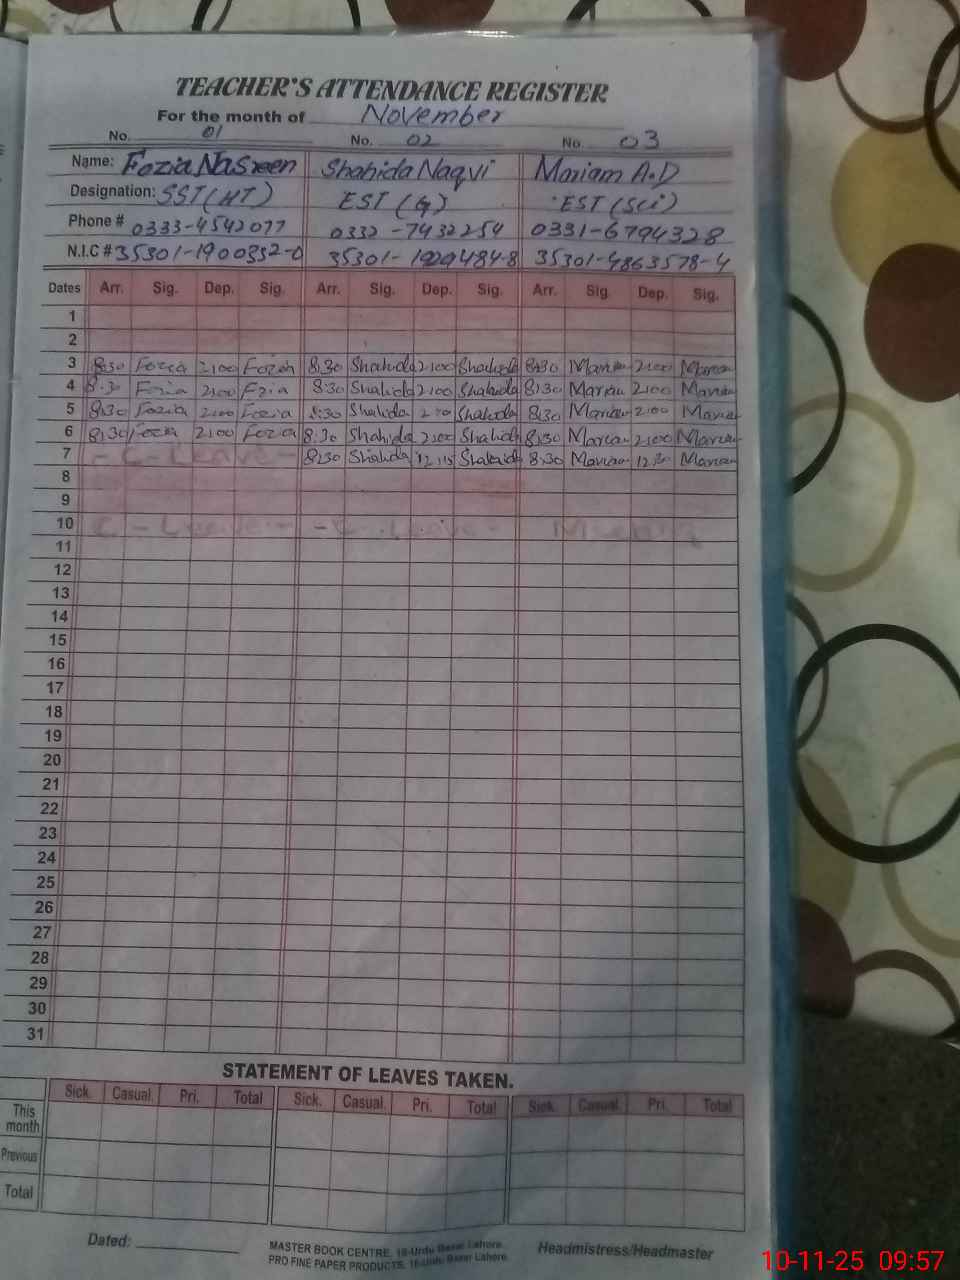 TEACHER'S ATTENDANCE REGISTER
For the month of November
No. 01 No. 02 No. 03
Name: Fozia Nasreen Shahida Naqvi Mariam A.D
Designation: SST(HT) EST (G) EST (Sci)
Phone # 0333-4542077 0332-7432254 0331-6794328
N.I.C # 35301-1900352-0 35301- 35301-4863578-4
Dates Arr. Sig. Dep. Sig. Arr. Sig. Dep. Sig. Arr. Sig. Dep. Sig.
1
2
3 8:30 Fozia 2:00 Fozia 8:30 Shahida 2:00 Shahida 8:30 Mariam 2:00 Mariam
4 8:30 Fozia 2:00 Fozia 8:30 Shahida 2:00 Shahida 8:30 Mariam 2:00 Mariam
5 8:30 Fozia 2:00 Fozia 8:30 Shahida 2:00 Shahida 8:30 Mariam 2:00 Mariam
6 8:30 Fozia 2:00 Fozia 8:30 Shahida 2:00 Shahida 8:30 Mariam 2:00 Mariam
7 - C - Leave - 8:30 Shahida 12:15 Shahida 8:30 Mariam Mariam
8
9
10 C - Leave - - C. Leave -
11
12
13
14
15
16
17
18
19
20
21
22
23
24
25
26
27
28
29
30
31
STATEMENT OF LEAVES TAKEN.
Sick. Casual. Pri. Total Sick. Casual. Pri. Total Sick. Casual. Pri. Total
This month
Previous
Total
Dated: MASTER BOOK CENTRE, 16-Urdu Bazar Lahore. Headmistress/Headmaster
PRO FINE PAPER PRODUCTS, 16-Urdu Bazar Lahore.
10-11-25 09:57